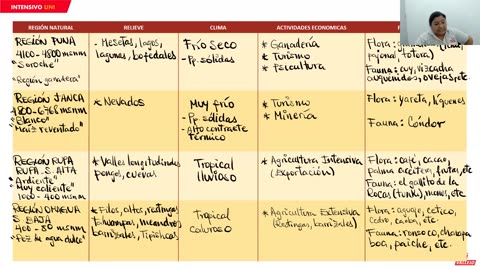 INTENSIVO UNI
REGIÓN NATURAL
RELIEVE
CLIMA
ACTIVIDADES ECONOMICAS
REGIÓN PUNA
4100 - 4800 msnm
"Soroche"
"Región ganadera"
- Mesetas, lagos,
lagunas, bofedales
Frío seco
- Pp. sólidas
* Ganadería
* Turismo
* Piscicultura
Flora:
pajonal, totora)
Fauna: cuy, vizcacha
auquénidos, ovejas, etc.
REGIÓN JANCA
4800 - 6768 msnm
"Blanco"
"Maíz reventado"
* Nevados
Muy frío
- Pp. sólidas
- Alto contraste
térmico
* Turismo
* Minería
Flora: yareta, líquenes
Fauna: Cóndor
REGIÓN RUPA
RUPA - S. ALTA
"Ardiente"
"Muy caliente"
1000 - 400 msnm
* Valles longitudinales
pongos, cuevas
Tropical
lluvioso
* Agricultura Intensiva
(Exportación)
Flora: café, cacao,
palma aceitera, frutas, etc
Fauna: el gallito de la
Rocas (tunki), monos, etc.
REGIÓN OMAGUA
S. BAJA
400 - 80 msnm
"Pez de agua dulce"
* Filos, altos, restingas
Tahuampas, meandros
barrizales, Tipishcas
Tropical
caluroso
* Agricultura Extensiva
(Restingas, barrizales)
Flora: aguaje, cetico,
cedro, caoba, etc
Fauna: ronsoco, charapa
boa, paiche, etc.